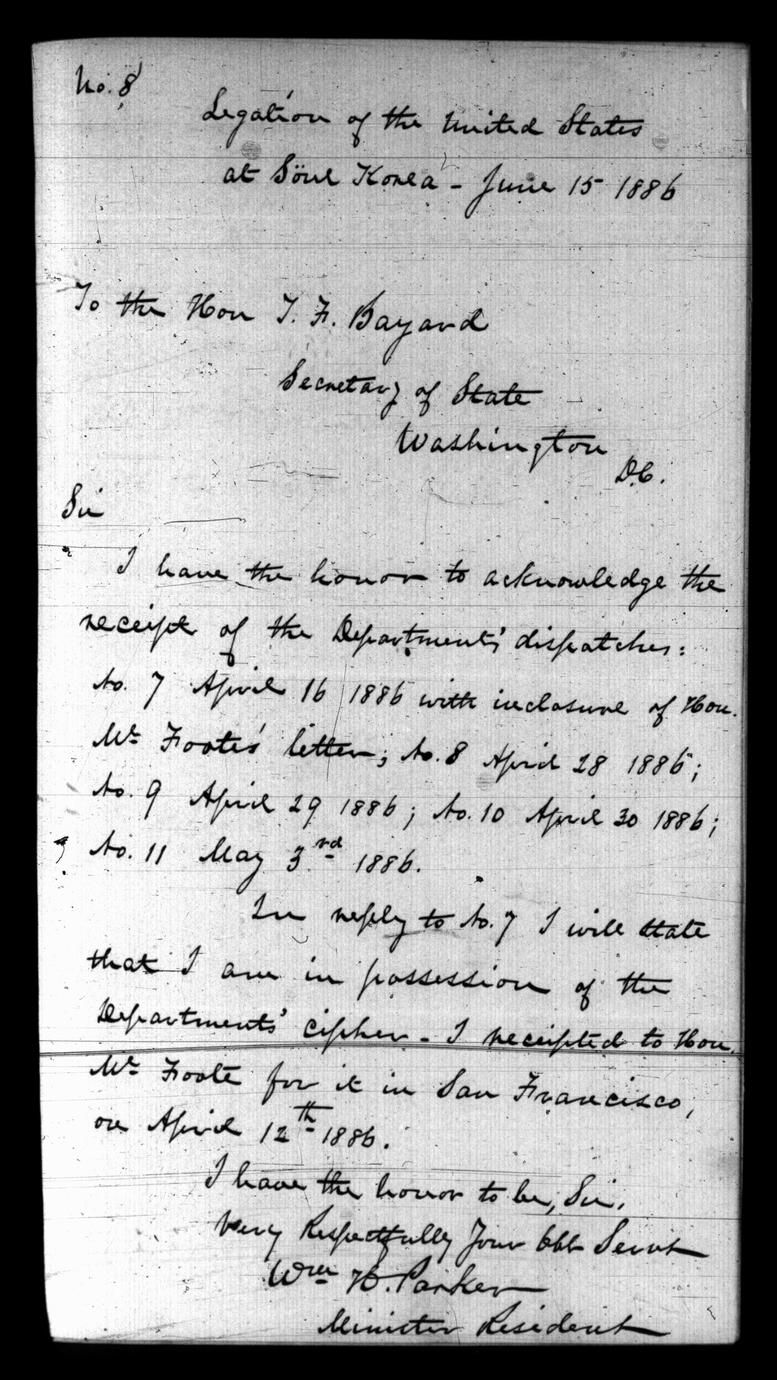 No. 8
Legation of the United States
at Söul Korea - June 15 1886
To the Hon T. F. Bayard
Secretary of State
Washington
D.C.
Sir
I have the honor to acknowledge the
receipt of the Departments' dispatches:
No. 7 April 16 1886 with inclosure of Hon.
Mr Foote's letter; No. 8 April 28 1886;
No. 9 April 29 1886; No. 10 April 30 1886;
No. 11 May 3rd 1886.
In reply to No. 7 I will state
that I am in possession of the
Departments' cipher - I receipted to Hon.
Mr Foote for it in San Francisco,
on April 12th 1886.
I have the honor to be, Sir,
Very Respectfully Your Obt Servt
Wm H. Parker
Minister Resident